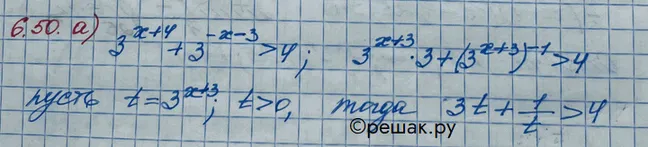 6.50. а) 3^{x+4} + 3^{-x-3} > 4; 3^{x+3} · 3 + (3^{x+3})^{-1} > 4
пусть t = 3^{x+3}; t > 0, тогда 3t + \frac{1}{t} > 4
©решак.ру